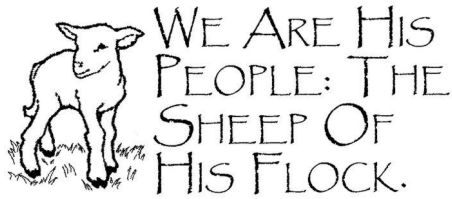 We Are His
People: The
Sheep Of
His Flock.